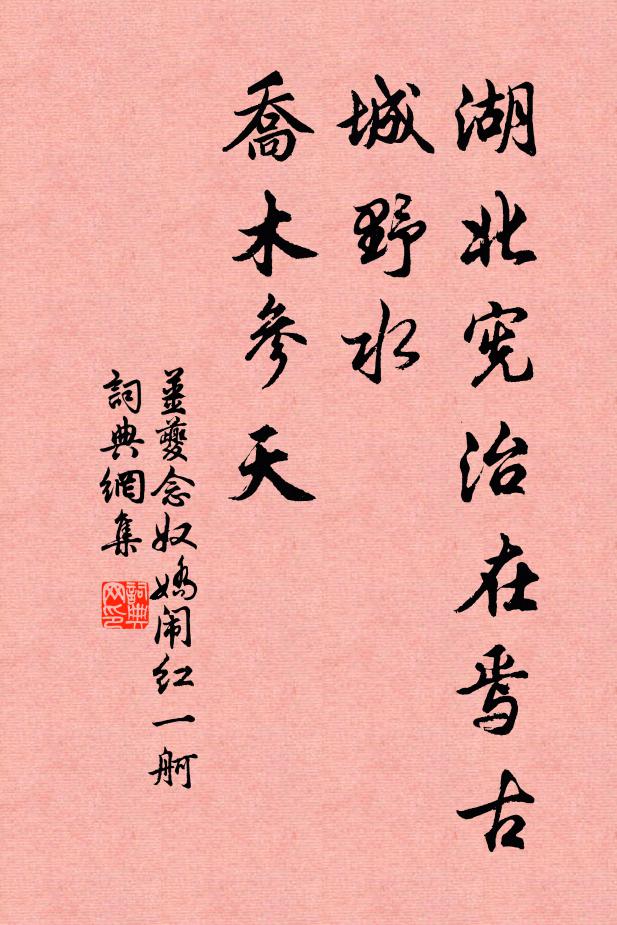 湖北宪治在焉古
城野水
喬木參天
姜夔念奴嬌闹红一舸
詞典網集
詞典网印